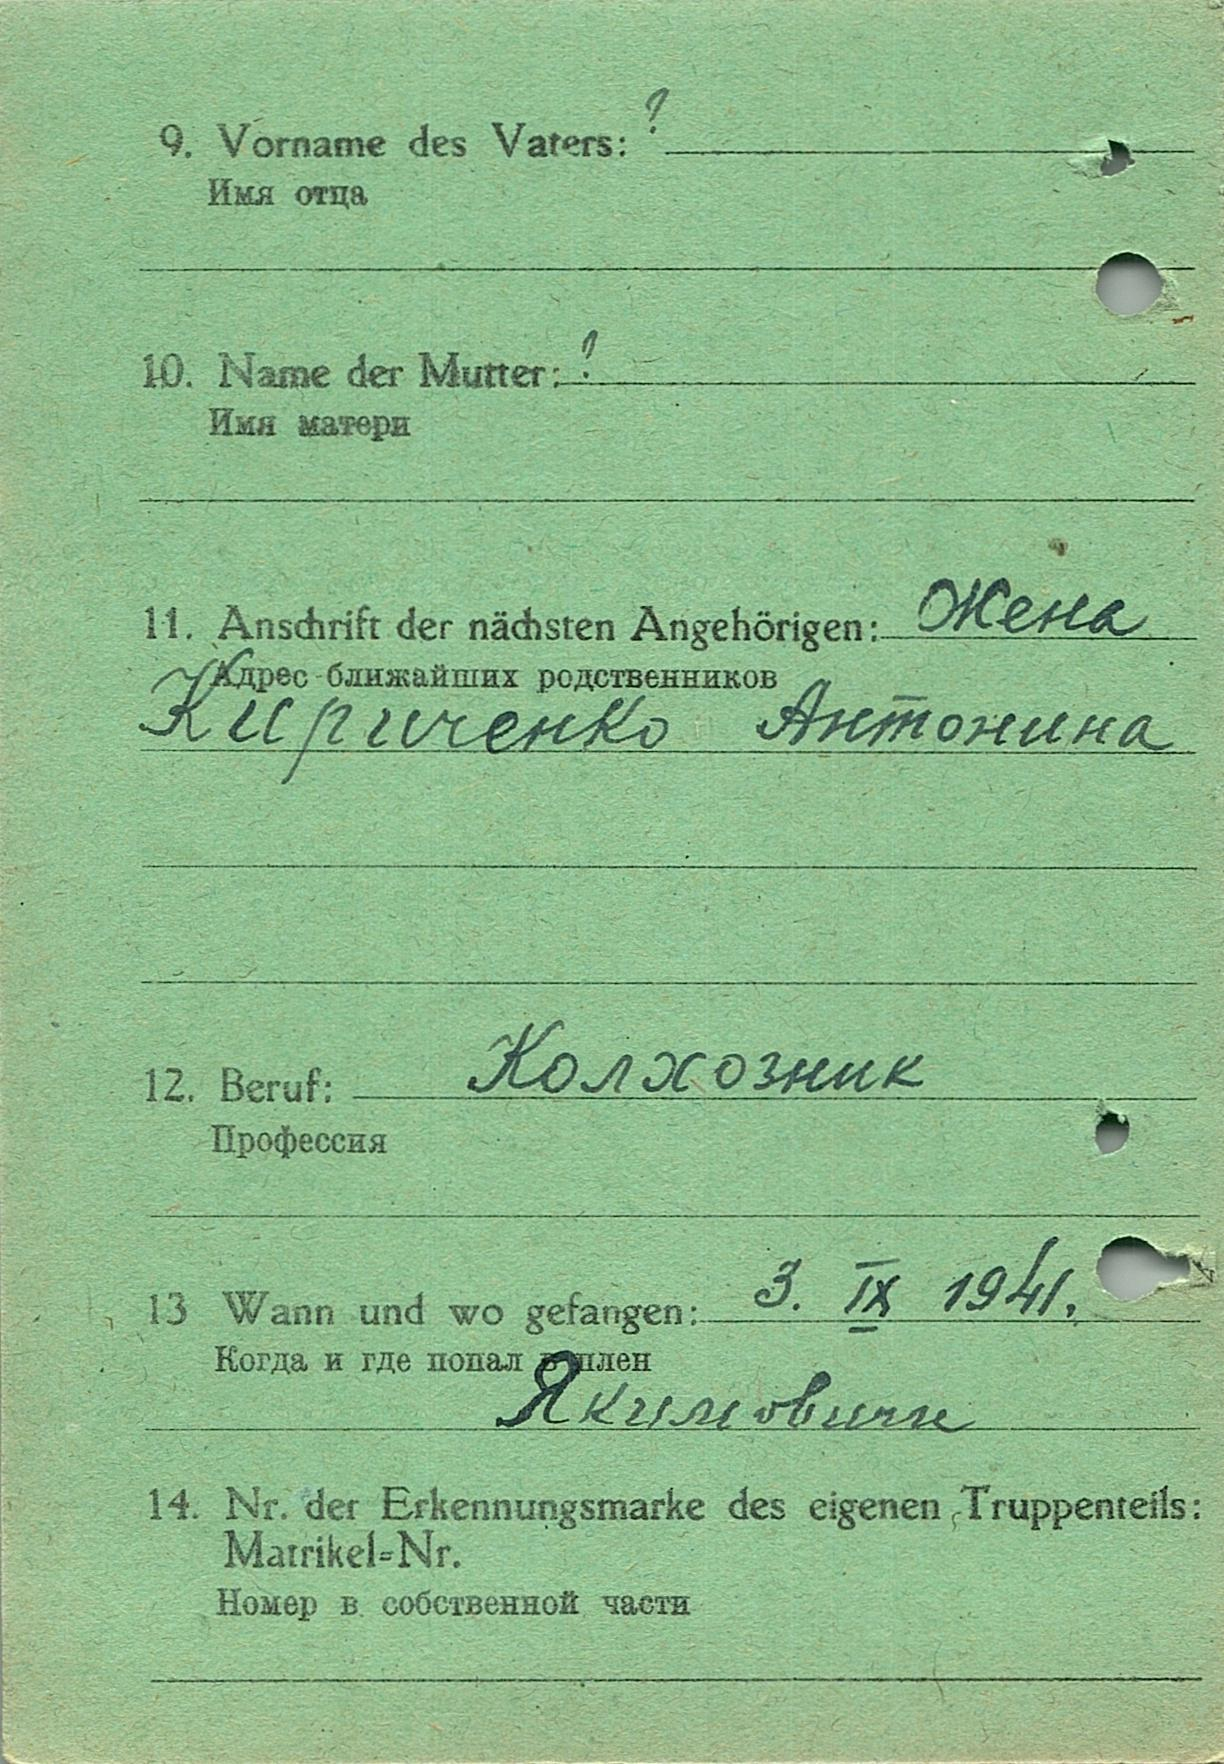 9. Vorname des Vaters: ?
Имя отца
10. Name der Mutter: ?
Имя матери
11. Anschrift der nächsten Angehörigen: Жена
Адрес ближайших родственников
Кириченко Антонина
12. Beruf: Колхозник
Профессия
13 Wann und wo gefangen: 3. IX 1941.
Когда и где попал в плен
Якимовичи
14. Nr. der Erkennungsmarke des eigenen Truppenteils:
Matrikel-Nr.
Номер в собственной части